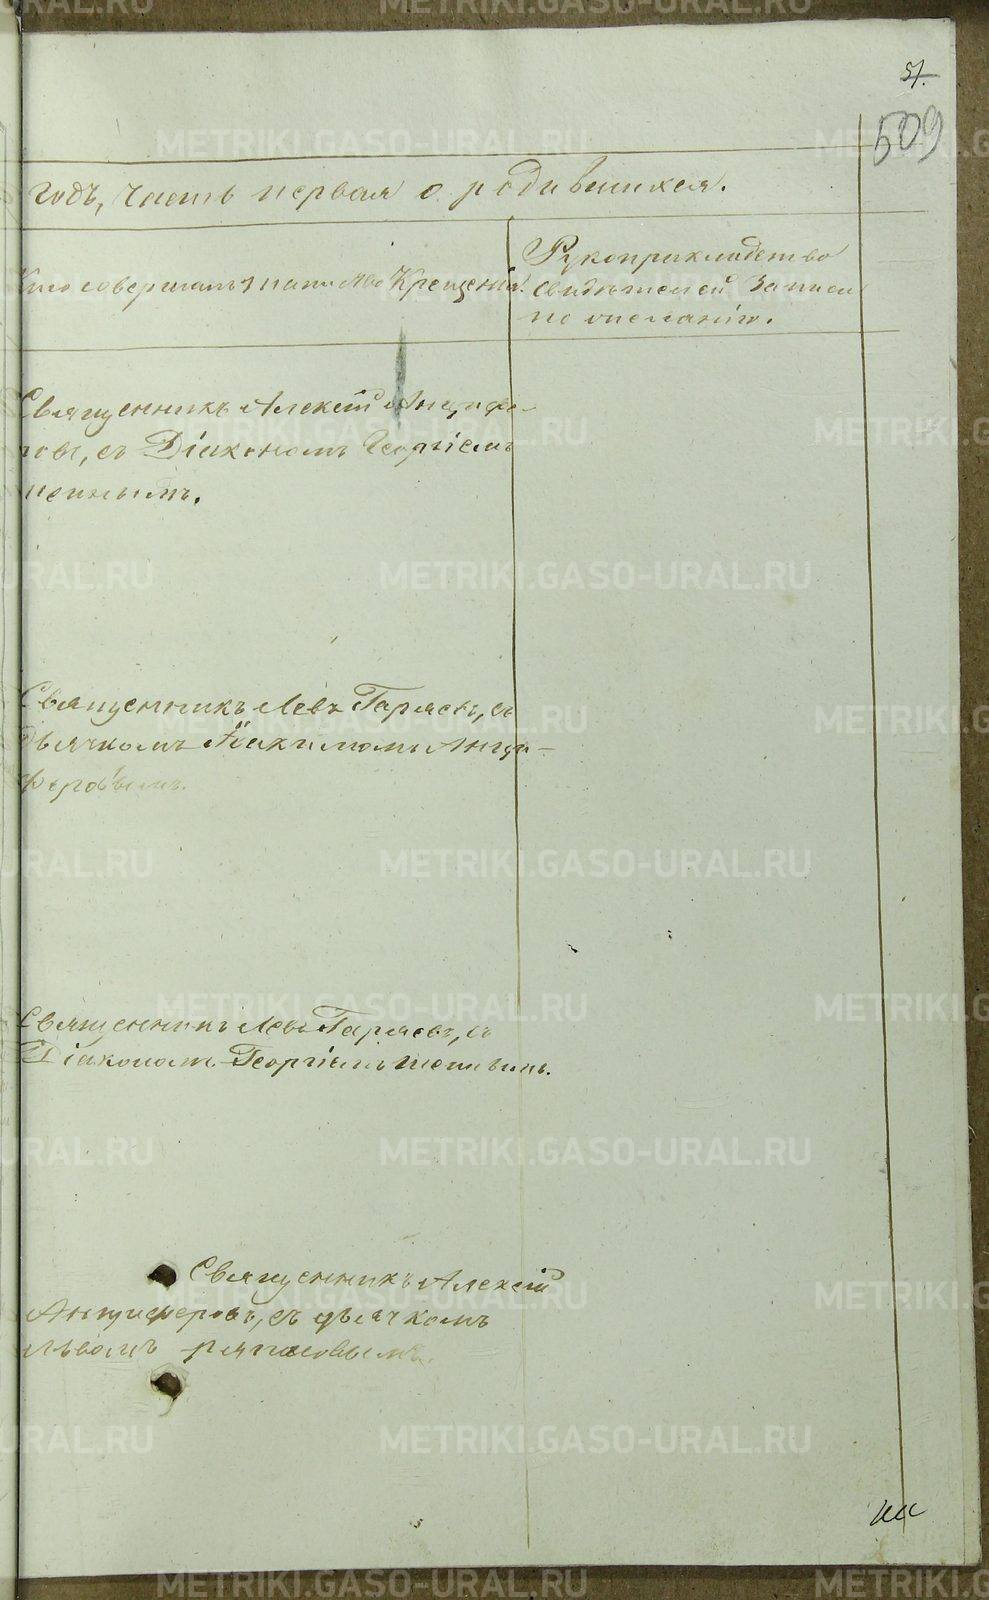 51.
509
годъ, часть первая о родившихся.
Кто совершалъ таинство Крещенія.
Рукоприкладство
свидѣтелей записи
по желанію.
Священникъ Алексій Анцифе-
ровъ, съ Діакономъ Георгіемъ
Священникъ Левъ Гаряевъ, съ
дьячкомъ Іоакимомъ Анци-
феровымъ.
Священникъ Левъ Гаряевъ, съ
Діакономъ Георгіемъ
Священникъ Алексій
Анциферовъ, съ дьячкомъ
Львомъ
METRIKI.GASO-URAL.RU